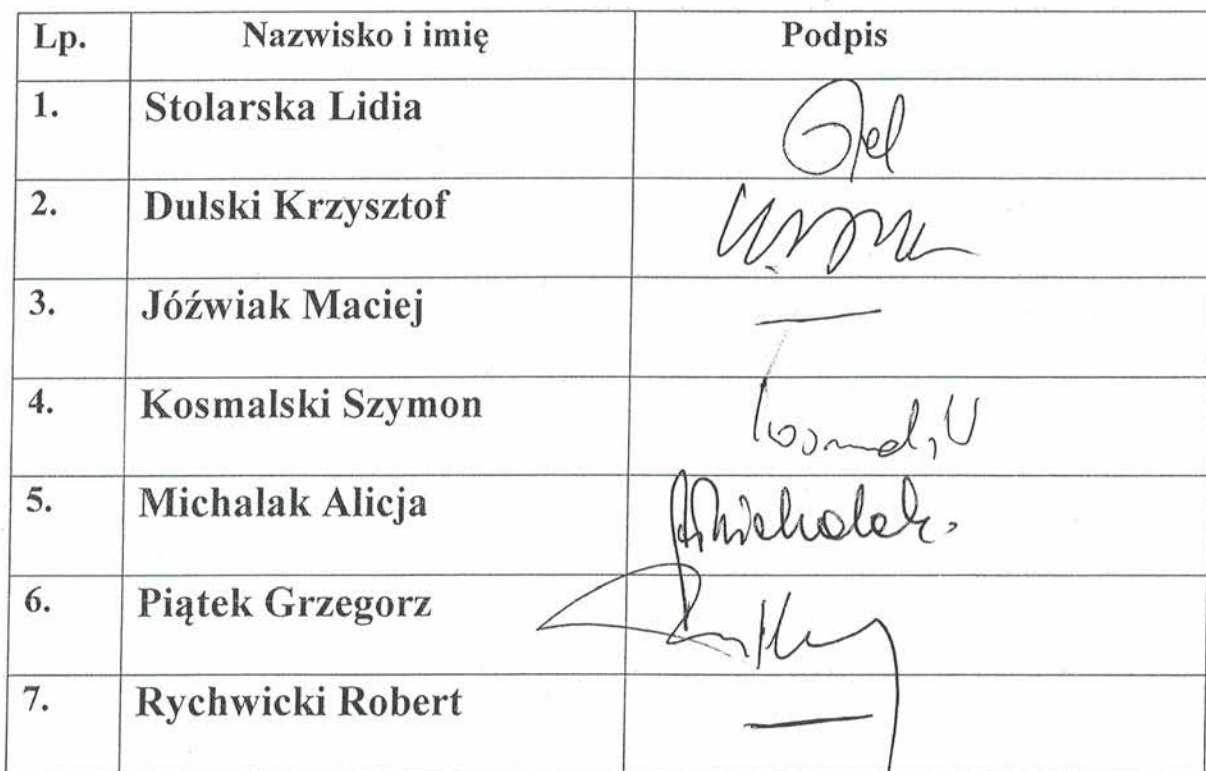 Lp. Nazwisko i imię Podpis
1. Stolarska Lidia
2. Dulski Krzysztof
3. Jóźwiak Maciej —
4. Kosmalski Szymon
5. Michalak Alicja AMichalak.
6. Piątek Grzegorz
7. Rychwicki Robert —